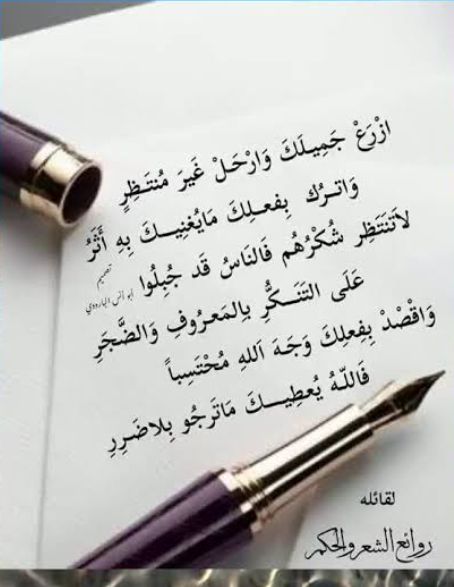 ازْرَعْ جَمِيلَكَ وَارْحَلْ غَيرَ مُنتَظِرٍ
وَاتـرُك بِفعـلِكَ مَايُغنِيــكَ بِهِ أَثَرُ
لاَتَنتَظِر شُكْرُهُم فَالنَاسُ قَد جُبِلُوا
تصميم
عَلَى التَنَــكُّرِ بِالمَعرُوفِ وَالضَّجَرِ
وَاقْصُدْ بِفعلِكَ وَجـَهَ اَللهِ مُحْتَسِباً
فَاللّـهُ يُعطِيـــكَ مَاتَرجُو بِلاضَرِرِ
لقائله
روائع الشعر والحكم